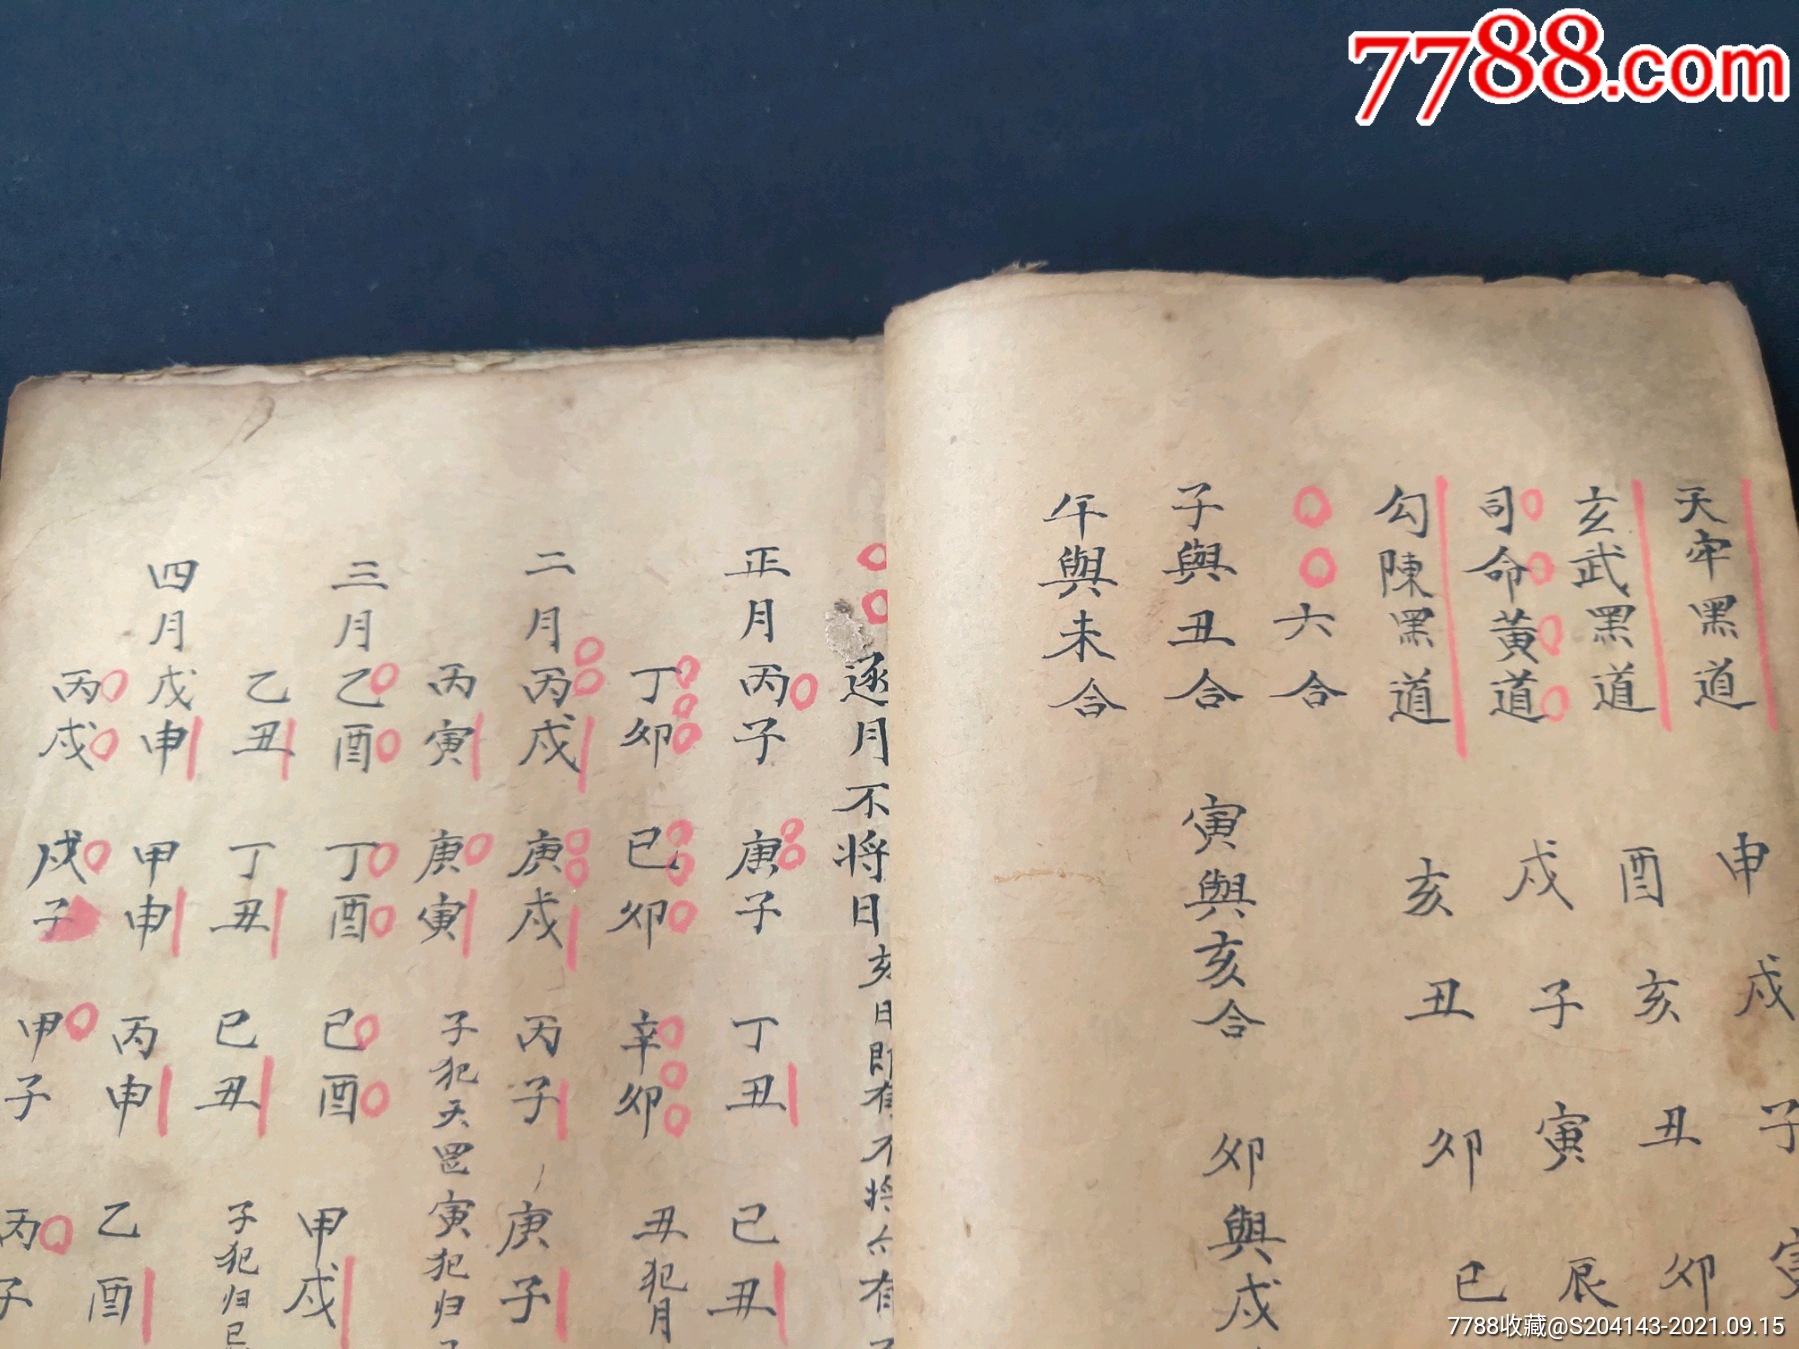 7788.com
天牢黑道 申 戌 子 寅
玄武黑道 酉 亥 丑 卯
司命黃道 戌 子 寅 辰
勾陳黑道 亥 丑 卯 巳
六合
子與丑合 寅與亥合 卯與戌
午與未合
逐月不将日 亥日即有不将亦有
正月 丙子 庚子 丁丑 己丑
丁卯 己卯 辛卯 丑犯月
二月 丙戌 庚戌 丙子 庚子
丙寅 庚寅 子犯天罡寅犯归
三月 乙酉 丁酉 己酉 甲戌
乙丑 丁丑 己丑 子犯归
四月 戊申 甲申 丙申 乙酉
丙戌 戊子 甲子 丙子
7788收藏@S204143-2021.09.15